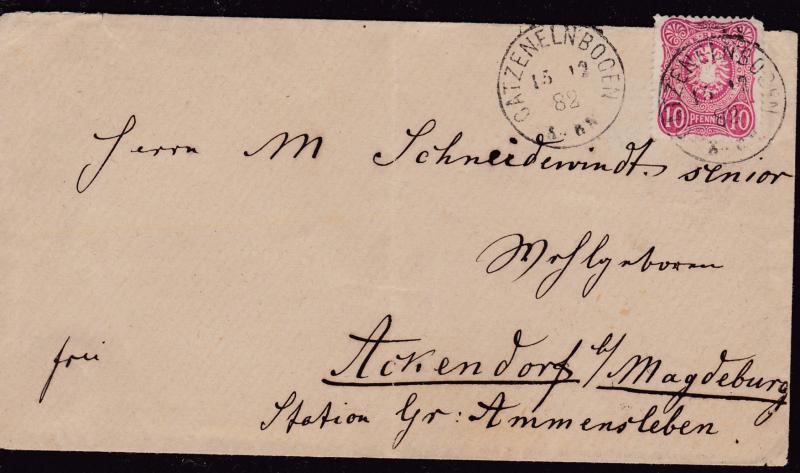 CATZENELNBOGEN
15 12
82
10 PFENNIG 10
ZENELNBOGEN
82
Herrn M Schneidewindt senior
Wohlgeboren
frei Ackendorf b/ Magdeburg
Station Gr: Ammensleben.